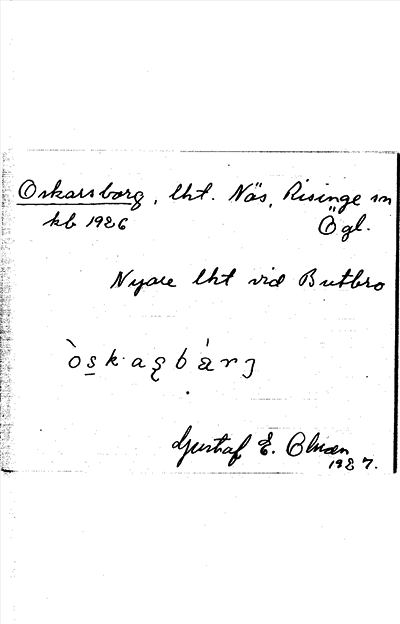 Oskarsborg, lht. Näs, Risinge sn
kb 1926 Ögl.
Nyare lht vid Butbro
Gustaf E. Olman
1927.